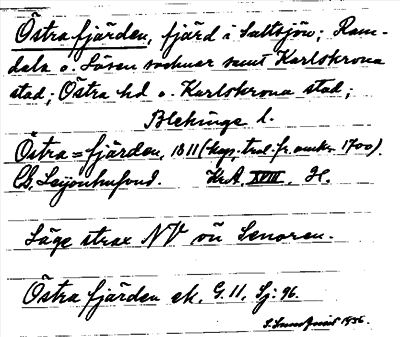 Östra fjärden, fjärd i Saltsjön; Ram-
dala o. Lösen socknar samt Karlskrona
stad; Östra hd o. Karlskrona stad;
Blekinge l.
Östra=fjärden, 1811 (kop. trol. fr. omkr. 1700).
C.G. Leijonhufvud. KrA XVIII. H.
Läge strax NV om Senoren.
Östra fjärden ek. G. 11, Sj: 96.
1936.